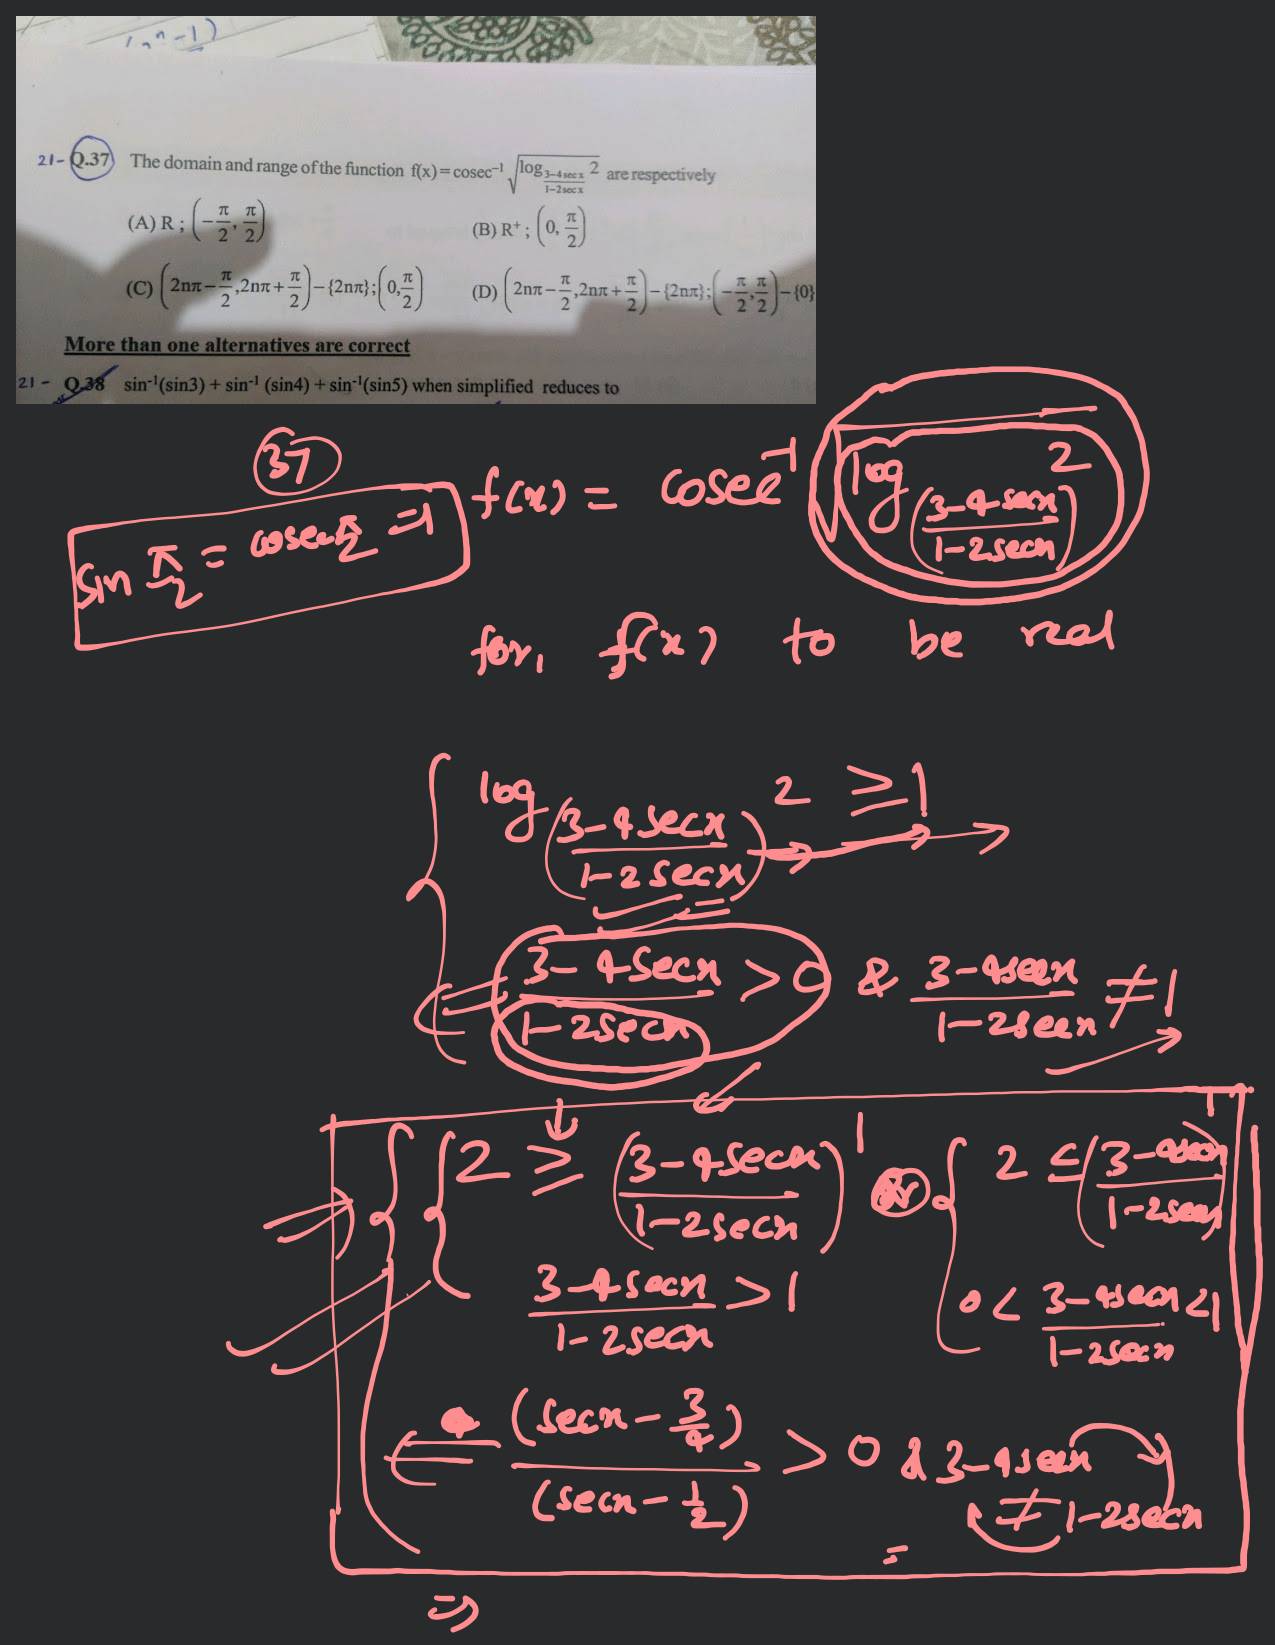 (n^n - 1)
21- Q.37 The domain and range of the function f(x) = cosec⁻¹ √(log_{(3-4secx)/(1-2secx)} 2) are respectively
(A) R ; (-π/2, π/2) (B) R⁺ ; (0, π/2)
(C) (2nπ - π/2, 2nπ + π/2) - {2nπ}; (0, π/2) (D) (2nπ - π/2, 2nπ + π/2) - {2nπ}; (-π/2, π/2) - {0}
More than one alternatives are correct
21 - Q.38 sin⁻¹(sin3) + sin⁻¹ (sin4) + sin⁻¹(sin5) when simplified reduces to
37
sin π/2 = cosec π/2 = 1
f(x) = cosec⁻¹ √(log_{((3-4secx)/(1-2secx))} 2)
for, f(x) to be real
log_{((3-4secx)/(1-2secx))} 2 ≥ 1
(3-4secx)/(1-2secx) > 0 & (3-4secx)/(1-2secx) ≠ 1
2 ≥ ((3-4secx)/(1-2secx))^1 or 2 ≤ ((3-4secx)/(1-2secx))^1
(3-4secx)/(1-2secx) > 1 0 < (3-4secx)/(1-2secx) < 1
(secx - 3/4)/(secx - 1/2) > 0 & 3-4secx ≠ 1-2secx
=
⇒